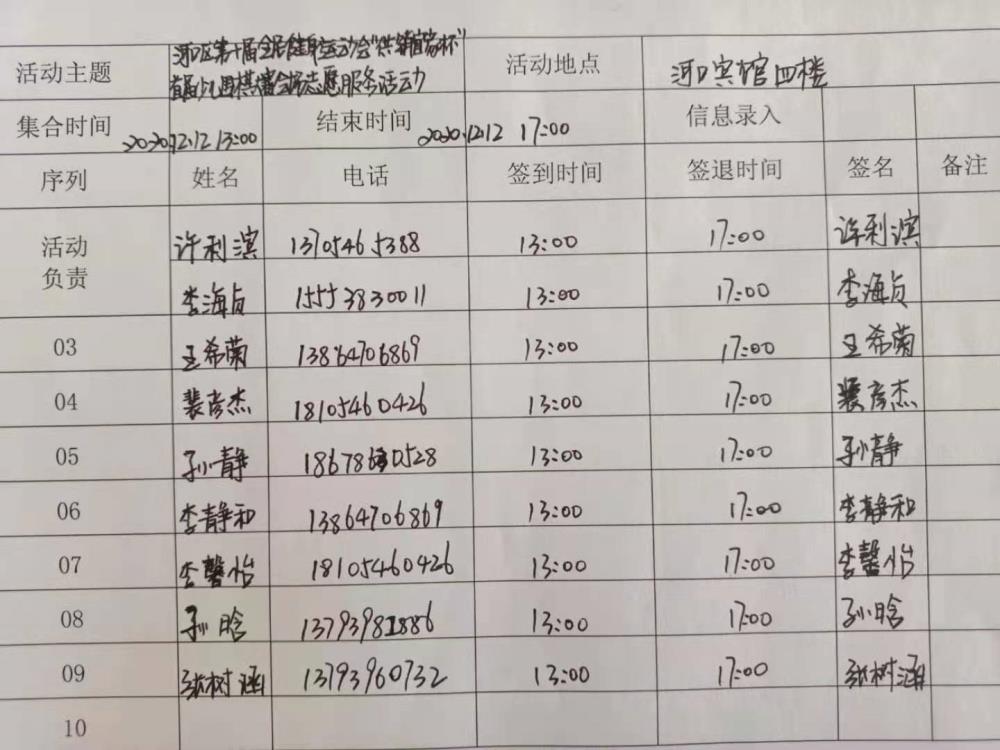 活动主题 河口区第十届全民健身运动会“供销富家杯” 活动地点 河口宾馆四楼
首届少儿围棋赛会志愿服务活动
集合时间 2020.12.12 13:00 结束时间 2020.12.12 17:00 信息录入
序列 姓名 电话 签到时间 签退时间 签名 备注
活动负责 许利滨 13705465388 13:00 17:00 许利滨
李海贞 15553830011 13:00 17:00 李海贞
03 王希菊 13864706869 13:00 17:00 王希菊
04 裴彦杰 18105460426 13:00 17:00 裴彦杰
05 孙静 186786 0528 13:00 17:00 孙静
06 李静和 13864706869 13:00 17:00 李静和
07 李馨怡 18105460426 13:00 17:00 李馨怡
08 孙晗 13793981886 13:00 17:00 孙晗
09 张树涵 13793960732 13:00 17:00 张树涵
10